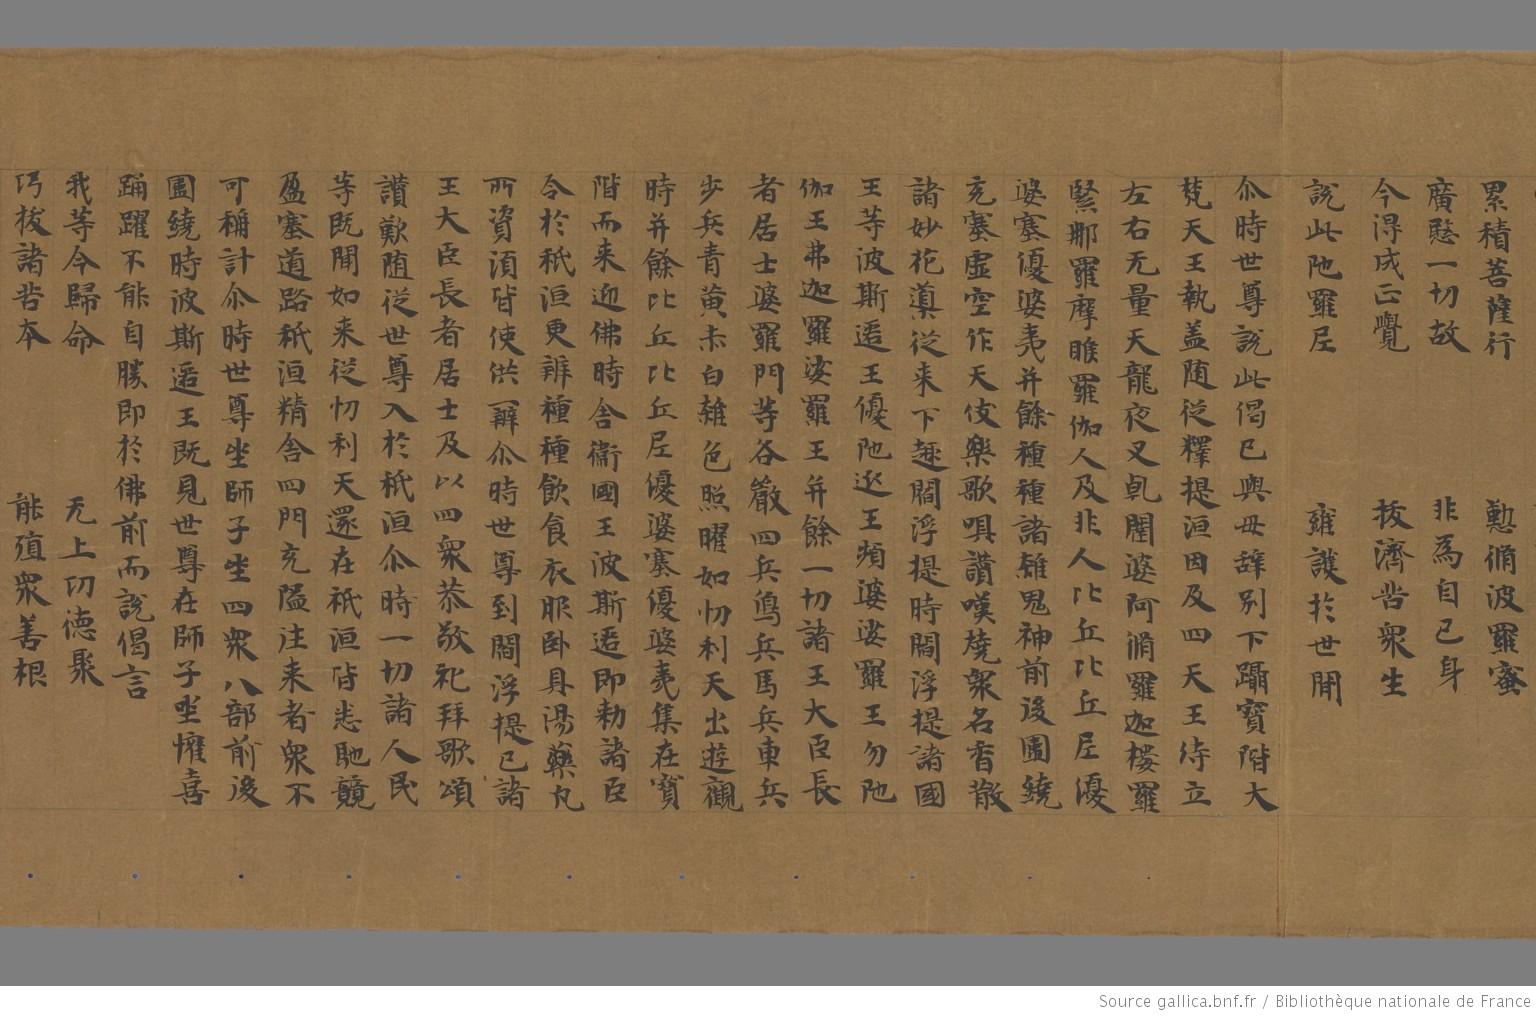 累積菩薩行 懃脩波羅蜜
廣愍一切故 非為自己身
今得成正覺 拔濟苦衆生
說此陁羅尼 雍護扵世間
尒時世尊說此偈已與母辞別下躡寶階大
梵天王執盖随從釋提洹因及四天王侍立
左右无量天龍夜叉乹闥婆阿脩羅迦樓羅
緊那羅摩睺羅伽人及非人比丘比丘尼優
婆塞優婆夷并餘種種諸雜鬼神前後圍繞
充塞虛空作天伎樂歌唄讃嘆燒衆名香散
諸妙花導從来下趣閻浮提時閻浮提諸國
王等波斯匿王優陁延王頻婆娑羅王勿陁
伽王弗迦羅娑羅王并餘一切諸王大臣長
者居士婆羅門等各嚴四兵烏兵馬兵車兵
步兵青黄赤白雜色照曜如忉利天出遊觀
時并餘比丘比丘尼優婆塞優婆夷集在寳
階而来迎佛時舍衞國王波斯匿即勑諸臣
令於祇洹更辨種種飲食衣服卧具湯藥九
所資湏皆使供辦尒時世尊到閻浮提已諸
王大臣長者居士及以四衆恭敬礼拜歌頌
讃歎随從世尊入於祇洹尒時一切諸人民
等既聞如来從忉利天還在祇洹皆悉馳競
盈塞道路祇洹精舍四門充隘注来者衆不
可稱計尒時世尊坐師子坐四衆八部前後
圍繞時波斯匿王既見世尊在師子坐懽喜
踊躍不能自勝即於佛前而說偈言
我等今歸命 无上㓛德聚
巧拔諸苦本 能殖衆善根
Source gallica.bnf.fr / Bibliothèque nationale de France